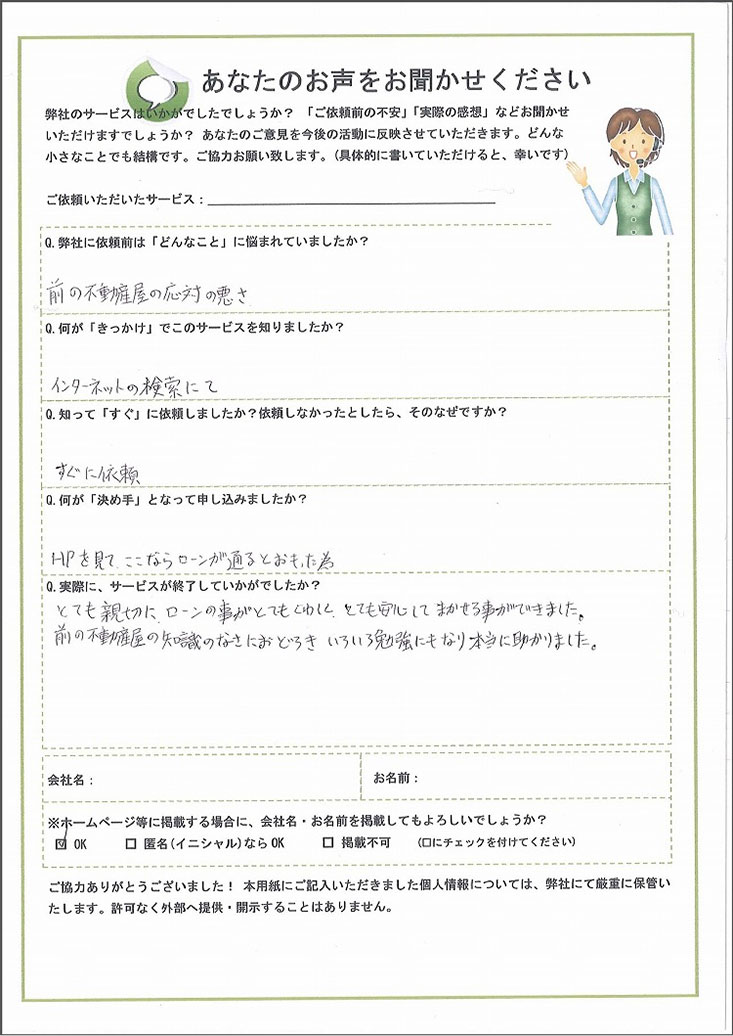 あなたのお声をお聞かせください
弊社のサービスはいかがでしたでしょうか？ 「ご依頼前の不安」「実際の感想」などお聞かせ
いただけますでしょうか？ あなたのご意見を今後の活動に反映させていただきます。どんな
小さなことでも結構です。ご協力お願い致します。（具体的に書いていただけると、幸いです）
ご依頼いただいたサービス：
Q.弊社に依頼前は「どんなこと」に悩まれていましたか？
前の不動産屋の応対の悪さ
Q.何が「きっかけ」でこのサービスを知りましたか？
インターネットの検索にて
Q.知って「すぐ」に依頼しましたか？依頼しなかったとしたら、そのなぜですか？
すぐに依頼
Q.何が「決め手」となって申し込みましたか？
HPを見て、ここならローンが通るとおもった為
Q.実際に、サービスが終了していかがでしたか？
とても親切に、ローンの事がとてもくわしく、とても安心してまかせる事ができました。
前の不動産屋の知識のなさにおどろき いろいろ勉強にもなり本当に助かりました。
会社名： お名前：
※ホームページ等に掲載する場合に、会社名・お名前を掲載してもよろしいでしょうか？
☑ OK □ 匿名(イニシャル)ならOK □ 掲載不可 （□にチェックを付けてください）
ご協力ありがとうございました！ 本用紙にご記入いただきました個人情報については、弊社にて厳重に保管い
たします。許可なく外部へ提供・開示することはありません。